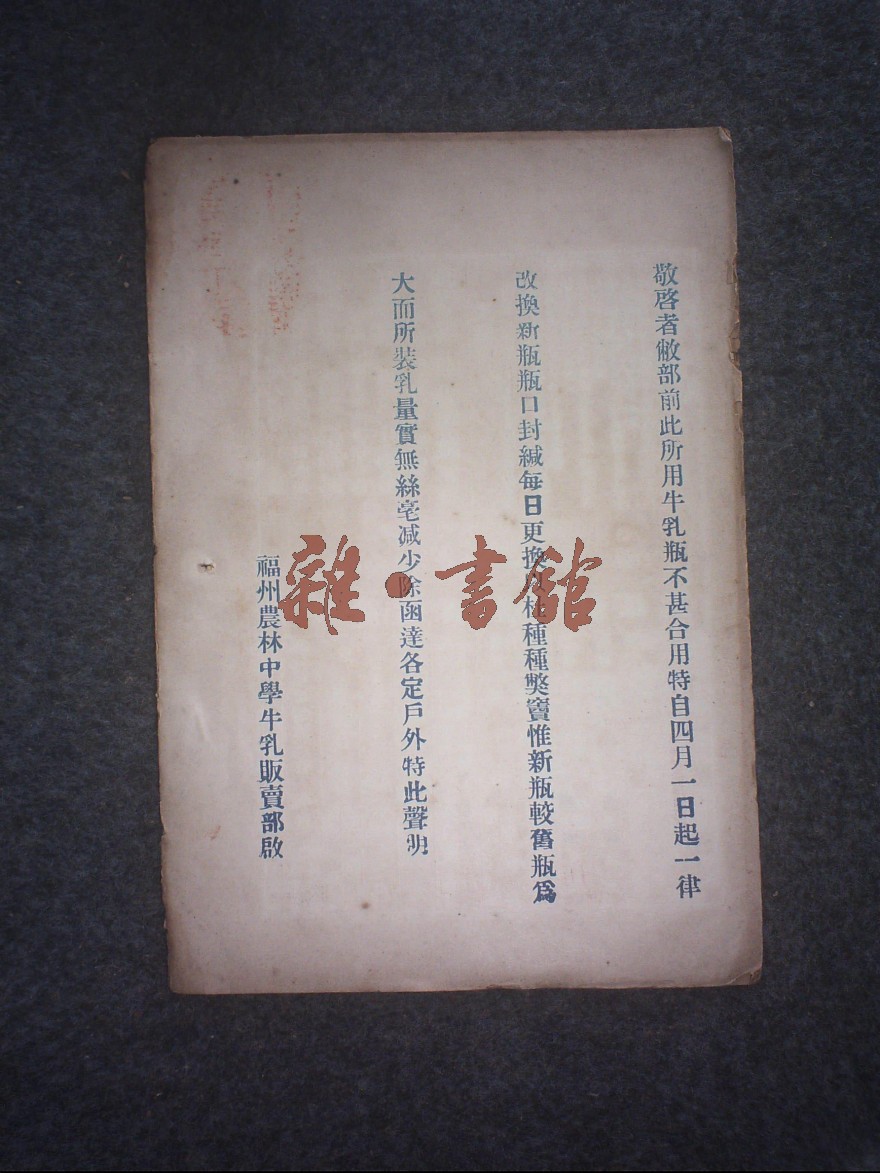 敬啓者敝部前此所用牛乳瓶不甚合用特自四月一日起一律
改換新瓶瓶口封緘每日更換 種種弊竇惟新瓶較舊瓶爲
大而所裝乳量實無絲毫减少除函達各定戶外特此聲明
福州農林中學牛乳販賣部啟
雜·書館